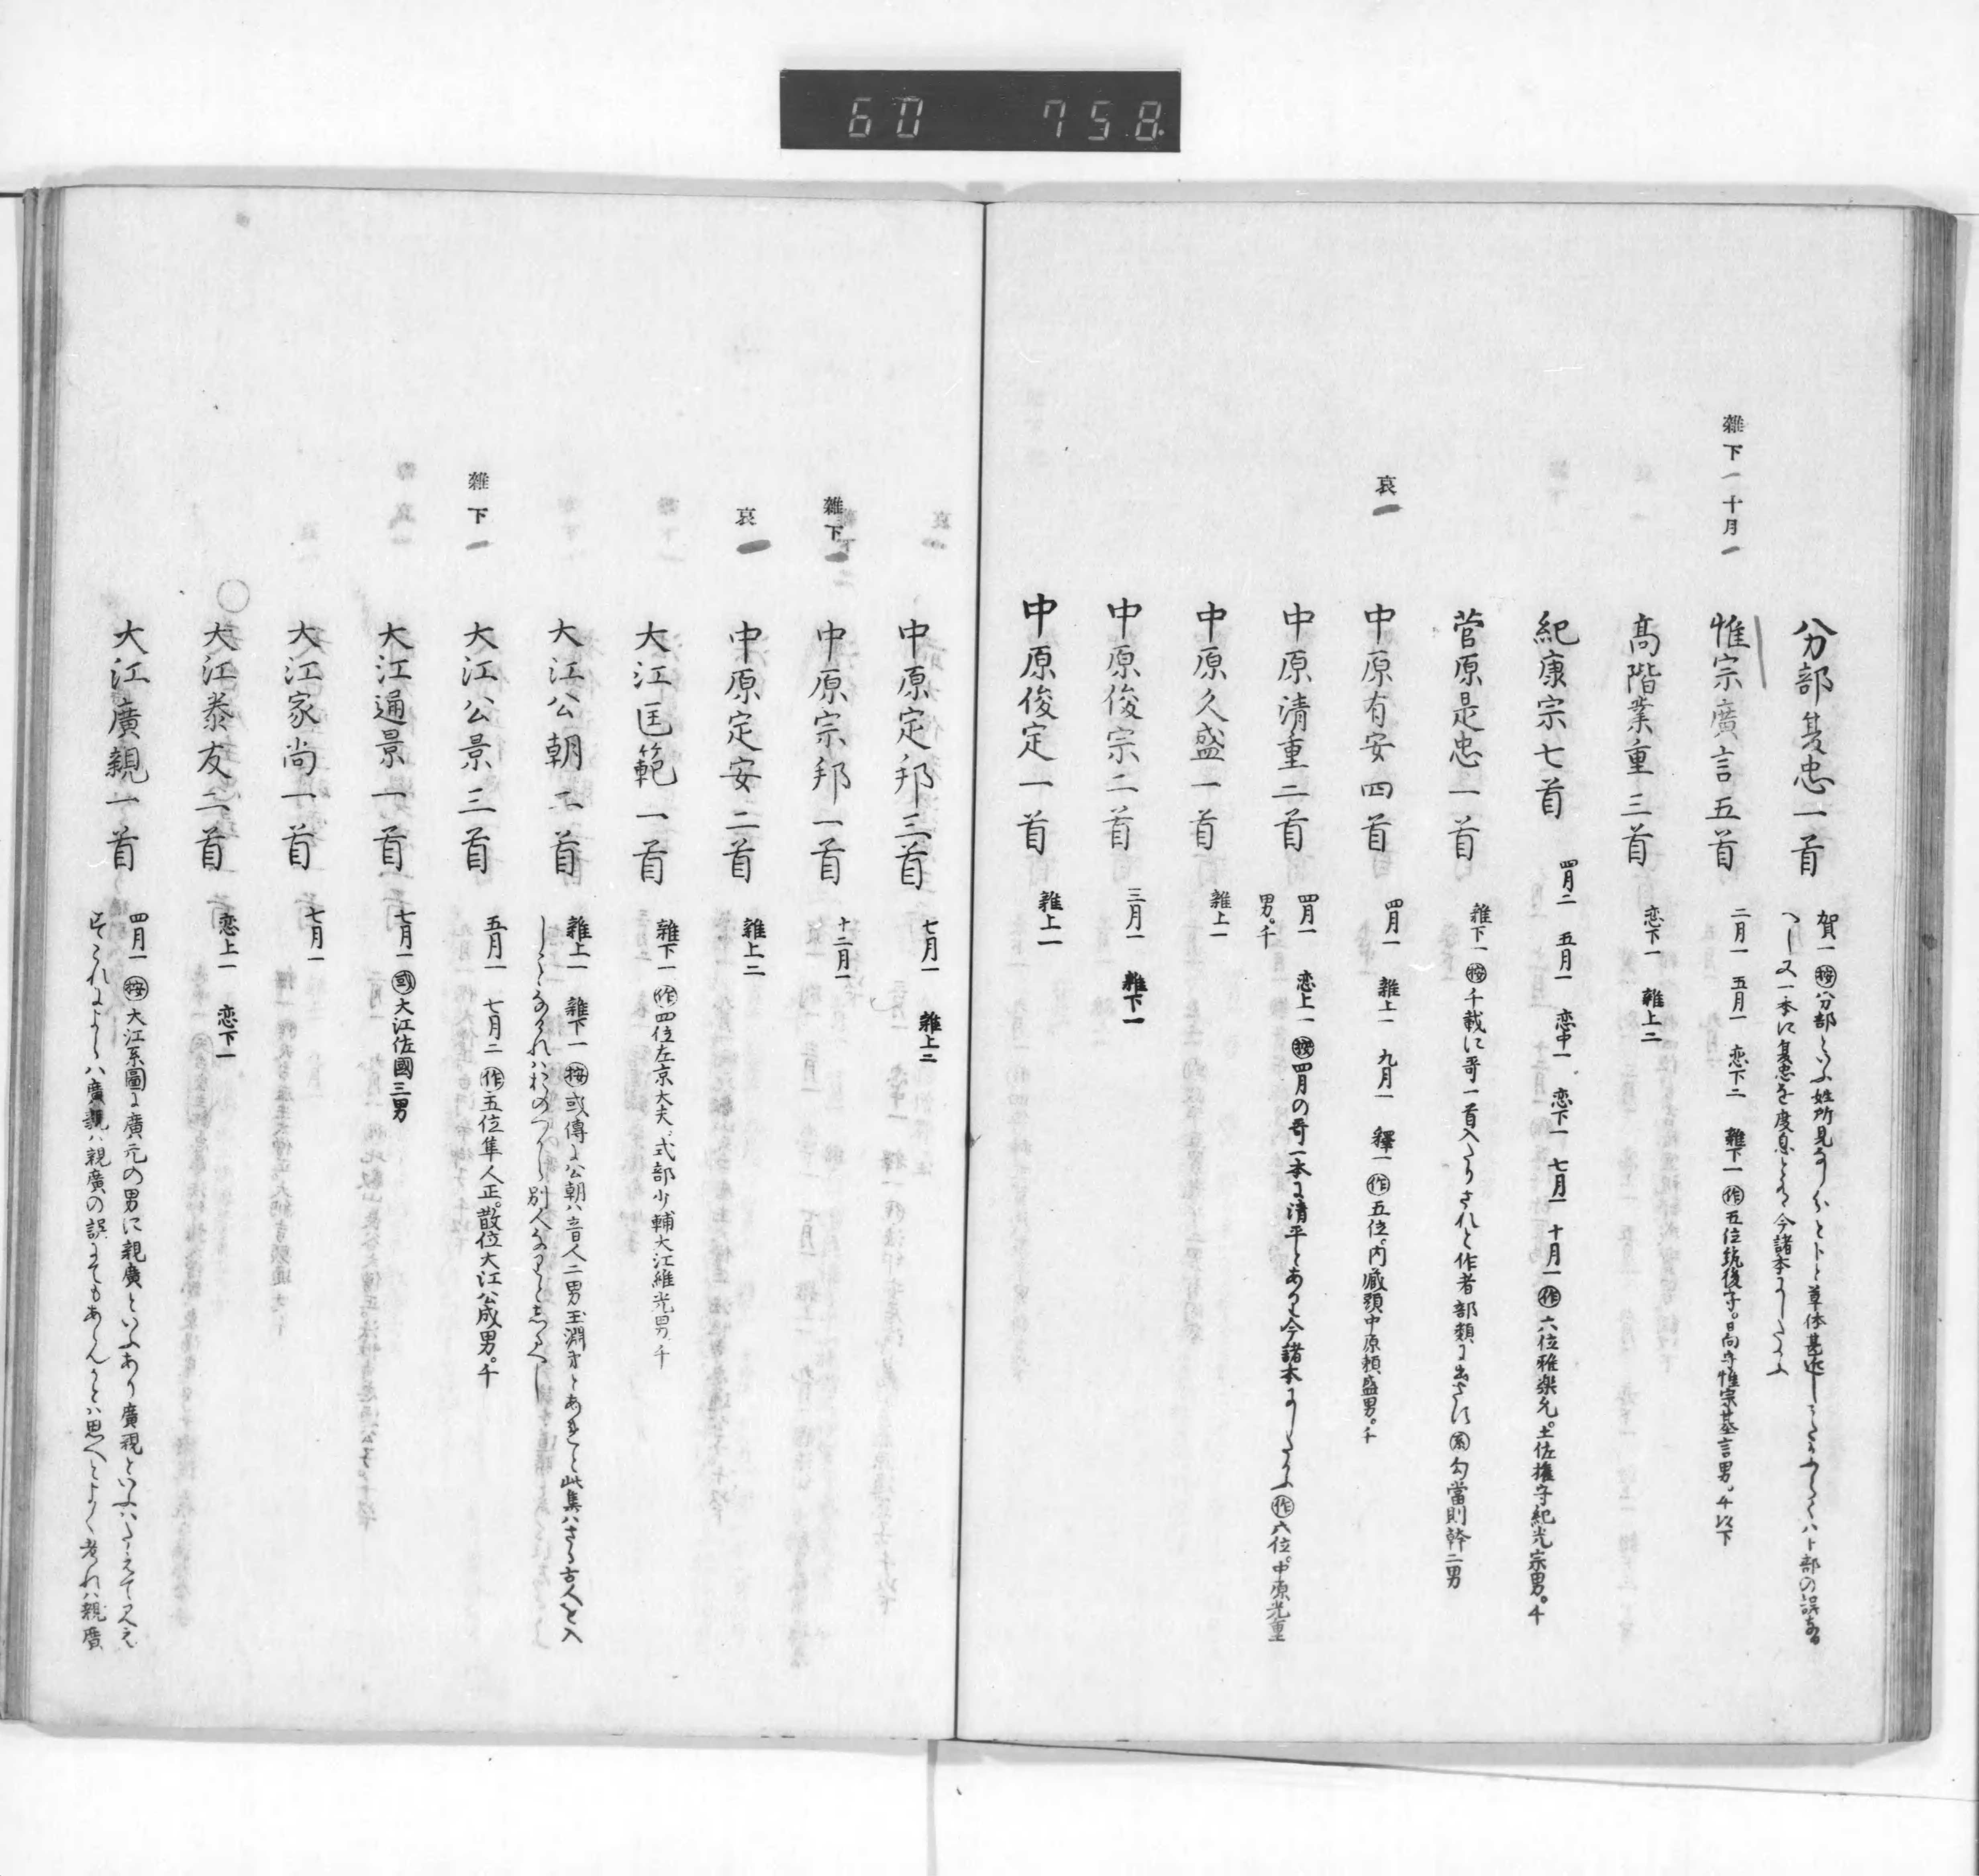 60 758
分部复忠一首
賀一 按 分部といふ姓所見なし
雑下一 十月一
惟宗廣言五首
二月一 五月一 恋下二 雜下一 作 五位筑後守。日向守惟宗基言男。千以下
高階業重三首
恋下一 雜上二
紀康宗七首
四月二 五月一 恋中一 恋下一 七月一 十月一 作 六位雅楽允。土佐権守紀光宗男。千
菅原是忠一首
雑下一 按 千載に哥一首入たりされと作者部類に出さす 系 勾當則幹二男
哀一
中原有安四首
四月一 雜上一 九月一 釋一 作 五位。内蔵頭中原頼盛男。千
中原清重二首
四月一 恋上一 按 四月の哥一本に清平とあり今諸本にしたかふ 作 六位。中原光重
男。千
中原久盛一首
雜上一
中原俊宗二首
三月一 雜下一
中原俊定一首
雜上一
中原定邦三首
七月一 雜上二
雑下一
中原宗邦一首
十二月一
哀一
中原定安二首
雜上二
大江匡範一首
雜下一 作 四位左京大夫。式部少輔大江維光男。千
大江公朝二首
雜上一 雜下一 按 或傳に公朝ハ音人二男玉淵才とあれと此集ハさる古人を入
雑下一
大江公景三首
五月一 七月二 作 五位隼人正。散位大江公成男。千
大江通景一首
七月一 或 大江佐國三男
大江家尚一首
七月一
○
大江泰友二首
恋上一 恋下一
大江廣親一首
四月一 按 大江系圖に廣元の男に親廣といふあり廣親といふハたえて見え
すこれによらハ廣親ハ親廣の誤にてもあらんかとハ思へとよく考れハ親廣